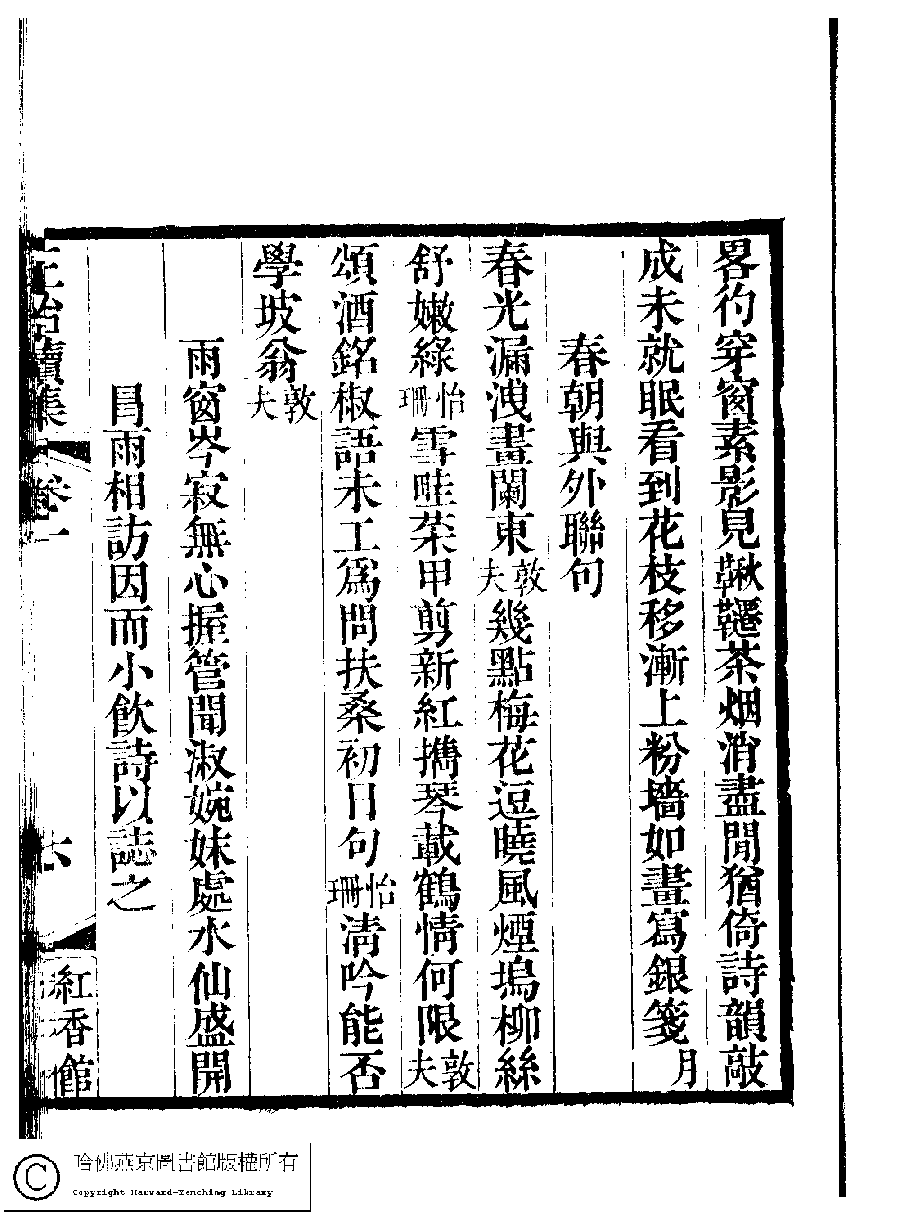 畧彴穿窗素影見鞦韆茶烟消盡閒猶倚詩韻敲
成未就眠看到花枝移漸上粉墻如畫寫銀箋月
春朝與外聯句
春光漏洩畫闌東敦夫幾點梅花逗曉風煙塢柳絲
舒嫩綠怡珊雪畦茶甲剪新紅攜琴載鶴情何限敦夫
頌酒銘椒語未工爲問扶桑初日句怡珊清吟能否
學坡翁敦夫
雨窗岑寂無心握管聞淑婉妹處水仙盛開
冒雨相訪因而小飲詩以誌之
續集
卷一
六
紅香館
哈佛燕京圖書館版權所有
Copyright Harvard-Yenching Library